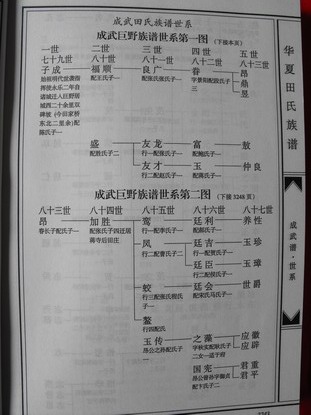 成武田氏族谱世系
成武巨野族谱世系第一图（下接本页）
一世 二世 三世 四世 五世
七十九世 八十世 八十一世 八十二世 八十三世
子成 福顺 良广 春 昂
始祖明代世袭指 配王氏子一 配张氏张氏子一 字景阳配段氏子 鼎
挥使永乐二年自 三 昱
诸城迁入巨野居
城西二十余里双
碑坡（今田家桥
东北二里余）配
陈氏子一
盛 友龙 富 敖
配胜氏子二 行一配张氏子一 配鲍氏子一
友才 玉 仲良
行二配赵氏子一 配蒋氏子一
成武巨野族谱世系第二图（下接3248页）
八十三世 八十四世 八十五世 八十六世 八十七世
昂 加胜 鸾 廷利 养性
春长子配氏子一 配张氏子四迁居 行一配李氏子一 配彭氏子一
蒋寺后田庄
凤 廷吉 玉珍
行二配曹氏子二 行一配贾氏子一
廷臣 玉璋
行二配侯氏子一
蛟 廷会 世爵
行三配张氏程氏 配宋氏马氏子一
子一
鳌
行四配氏
玉传 之藻 应徽
昂公之孙配氏子 字秋实配耿氏子 应辟
一 二女一适于府
国宪 君重
昂公曾孙字御贞 君平
配卞氏子二
华夏田氏族谱
成武谱·世系
3243